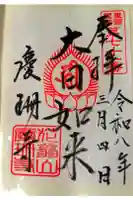 奉拝
令和八年
三月四日
大日如来
慶珊寺